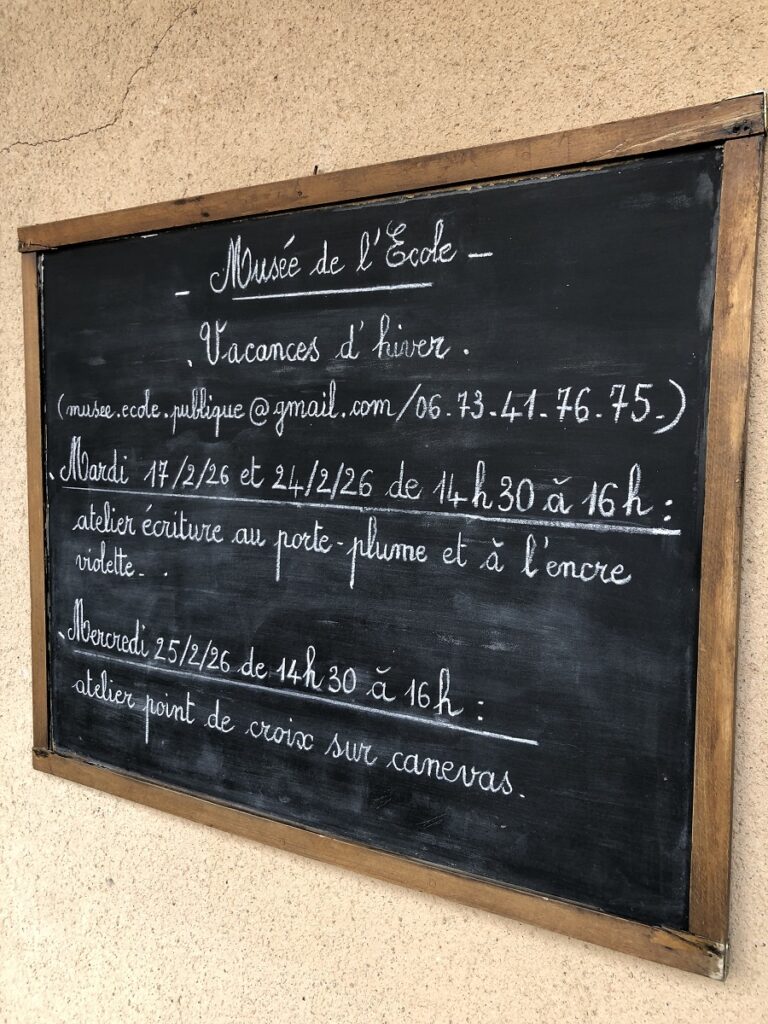 - Musée de l'Ecole -
. Vacances d'hiver .
(musee.ecole.publique@gmail.com/06-73-41-76-75-)
. Mardi 17/2/26 et 24/2/26 de 14h30 à 16h :
atelier écriture au porte-plume et à l'encre
violette. .
. Mercredi 25/2/26 de 14h30 à 16h :
atelier point de croix sur canevas.